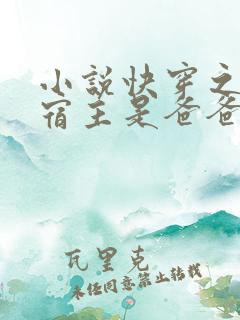 小说快穿之
宿主是爸爸
瓦里克
未经同意禁止转载